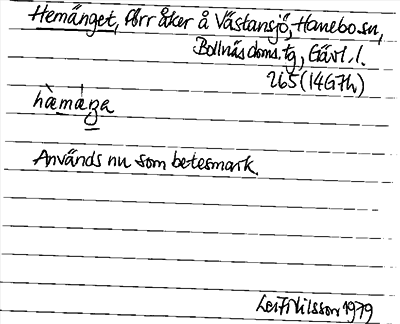 Hemänget, förr åker å Västansjö, Hanebo sn,
Bollnäs doms. tg, Gävl. l.
265 (14G7h)
hèmáŋa
Används nu som betesmark.
Leif Nilsson 1979